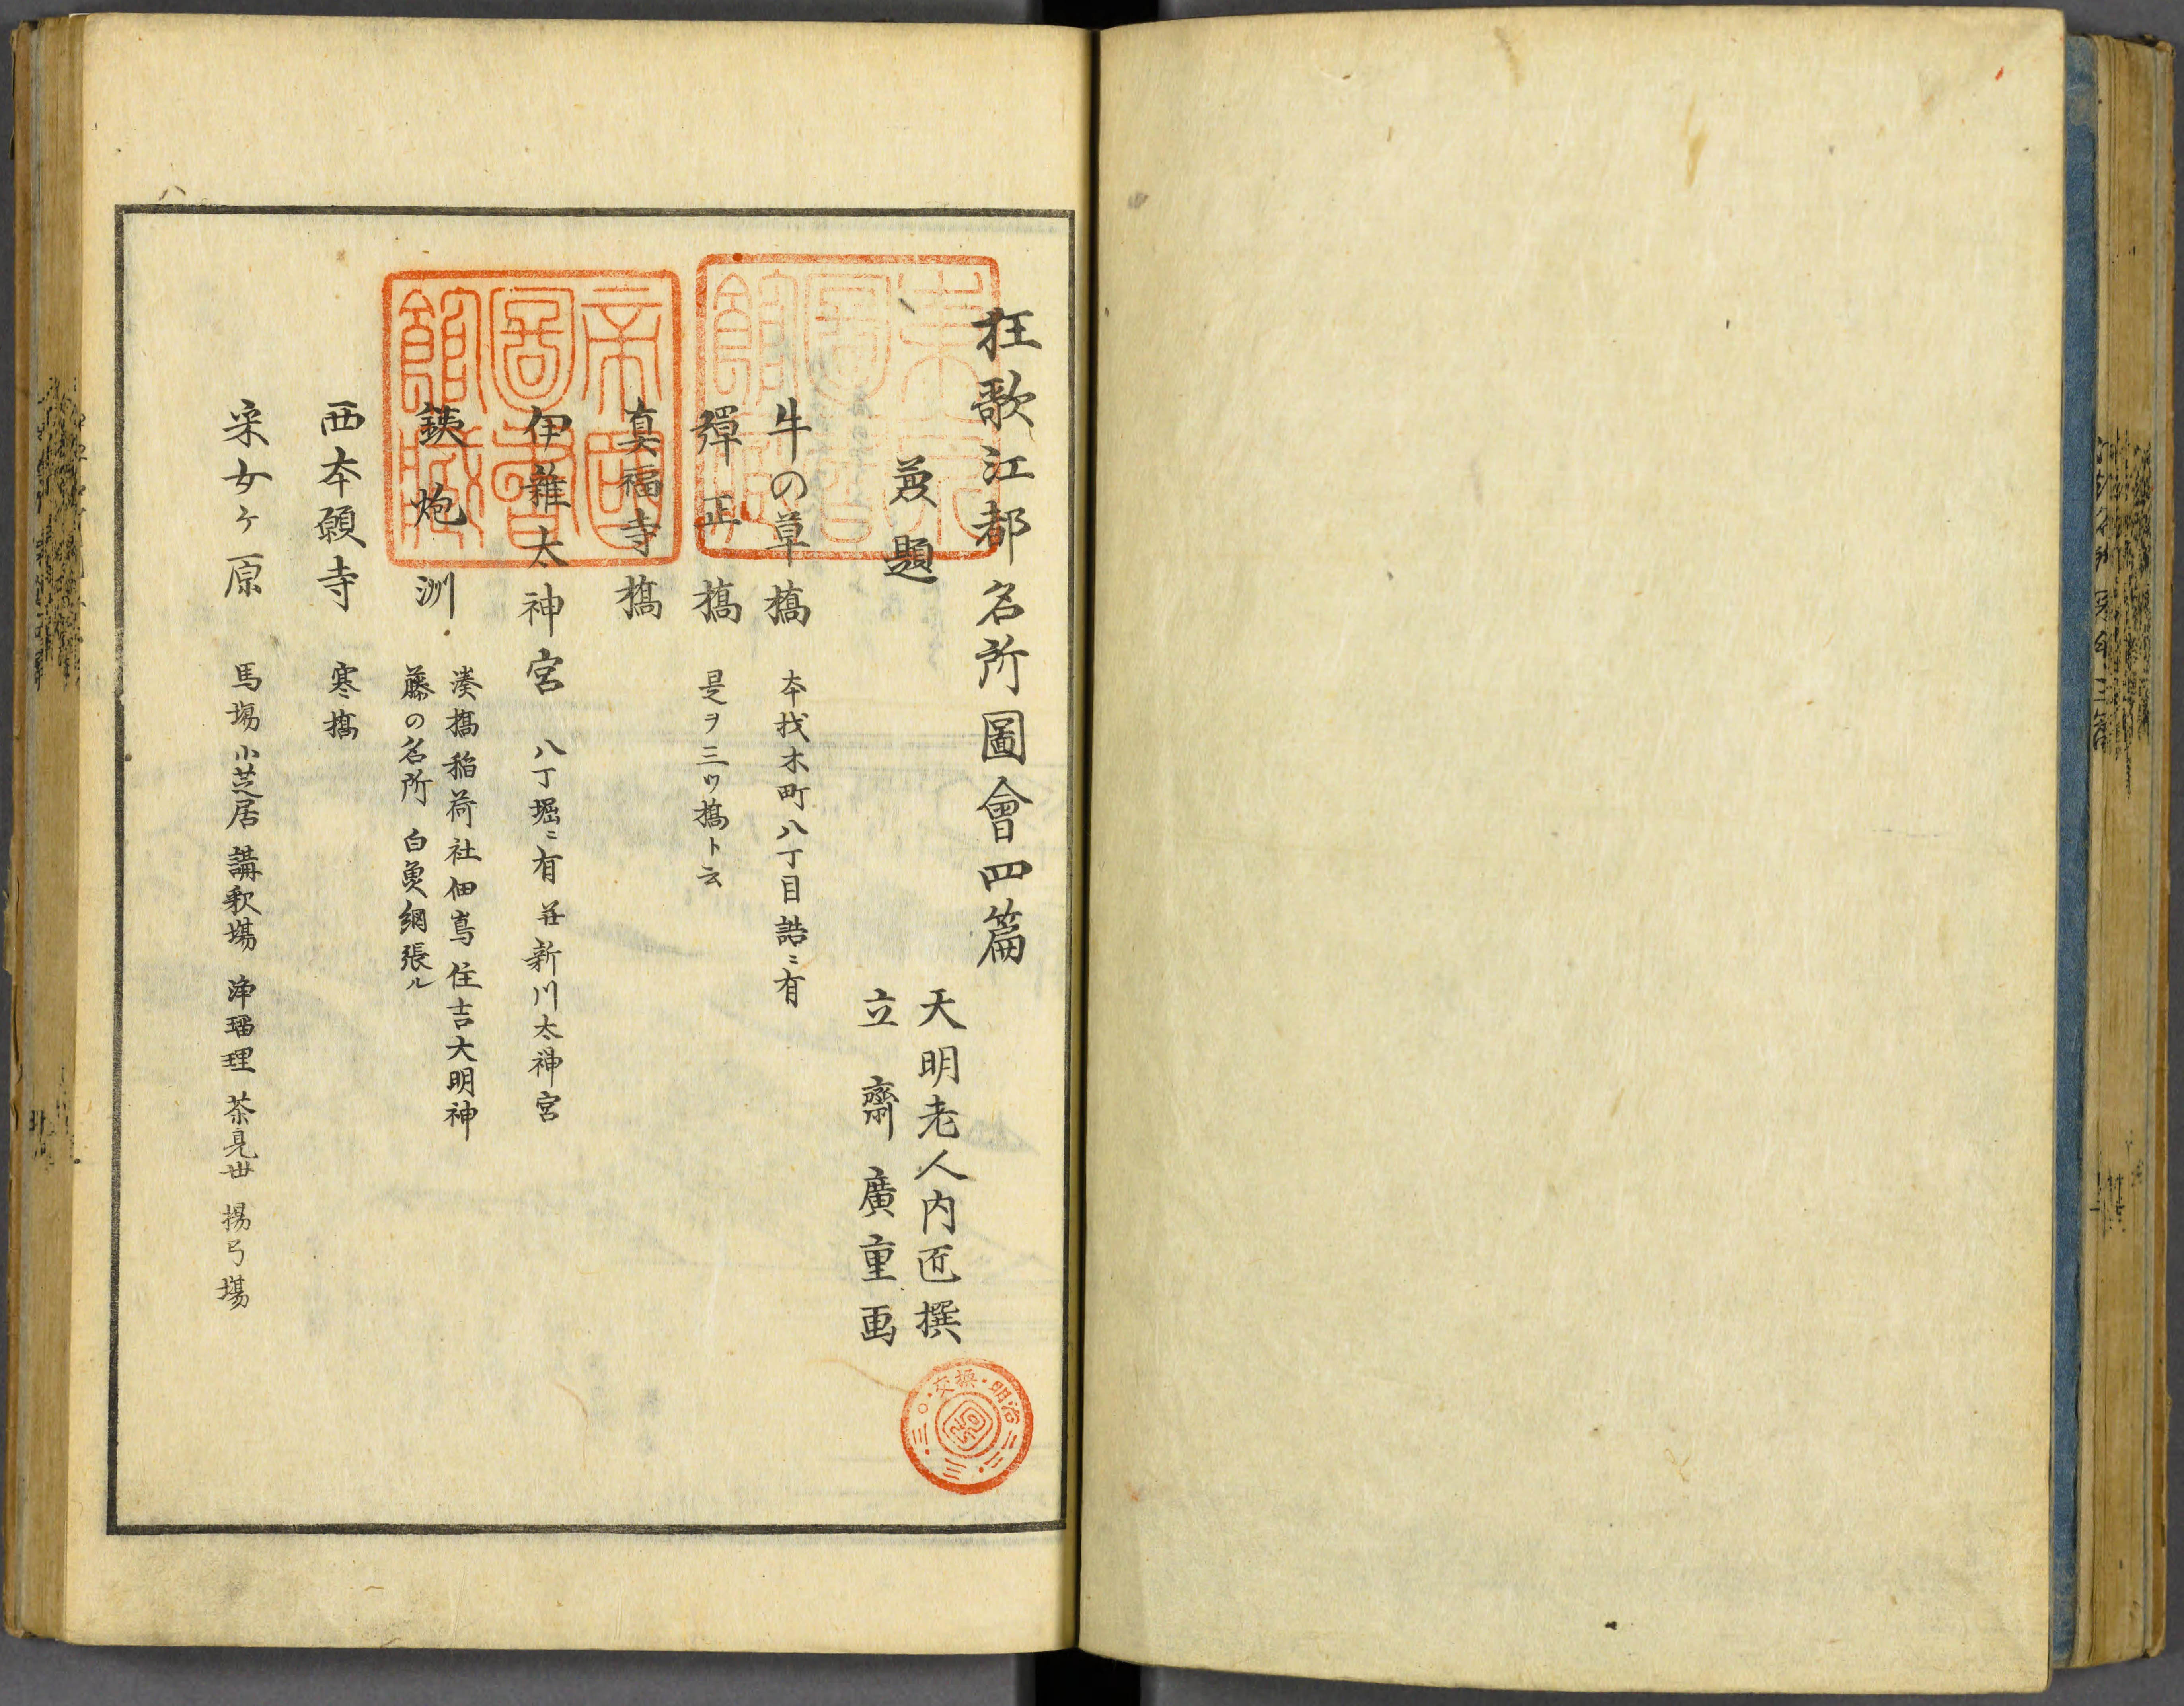 狂歌江都名所圖會四篇
兼題
天明老人内匠撰
立齋廣重画
牛の草橋 本材木町八丁目誥ニ有
彈正橋 是ヲ三ツ橋ト云
真福寺橋
伊雜太神宮 八丁堀ニ有 並新川太神宮
鉄炮洲 湊橋稲荷社佃嶌住吉大明神
藤の名所 白魚網張ル
西本願寺 寒橋
采女ケ原 馬場 小芝居 講釈場 浄瑠理 茶見世 揚弓場
東京圖書館藏
帝國圖書館藏
明治二二・三・三〇・交換